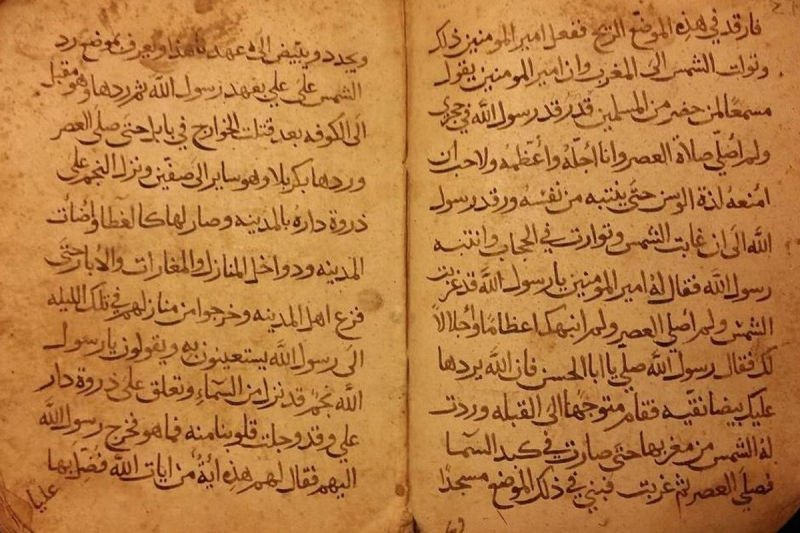 فارقد في هذه الموضع الريح ففعل امير المومنين ذلك
وتوات الشمس الى المغرب وان امير المومنين يقول
مسمعًا لمن حضر من المسلمين قد رقد رسول الله في حجري
ولم اصلي صلاة العصر وانا اجله وأعظمه ولا احب ان
امنعه لذة الوسن حتى ينتبه من نفسه ورقد رسول
الله الى ان غابت الشمس وتوارت في الحجاب وانتبه
رسول الله فقال له امير المومنين يا رسول الله قد غربت
الشمس ولم اصلي العصر ولم انبهك اعظامًا واجلالا
لك فقال رسول الله صلي يا ابا الحسن فان الله يردها
عليك بيضا نقيه فقام متوجهًا الى القبله وردت
له الشمس من مغربها حتى صارت في كبد السما
فصلى العصر ثم غربت فبني في ذلك الموضع مسجدًا
ويجدد ويبيض الى عهد ويعرف بموضع رد
الشمس على علي بعهد رسول الله ثم ردها وهو مقبل
الى الكوفه بعد قتات الخوارج في بابل حتى صلى العصر
وردها بكربلا وهو ساير الى صفين ونزل النجم على
ذروة داره بالمدينه وصار لها كالغطا واضأت
المدينه ودواخل المنازل والمغارات والابار حتى
فزع اهل المدينه وخرجوا من منازلهم في تلك الليله
الى رسول الله يستعينون به ويقولون يا رسول
الله نجم قد نزل من السماء وتعلق على ذروة دار
علي وقد وجلت قلوبنا منه فما هو فخرج رسول الله
اليهم فقال لهم هذه آية من ايات الله فضل بها
عليا